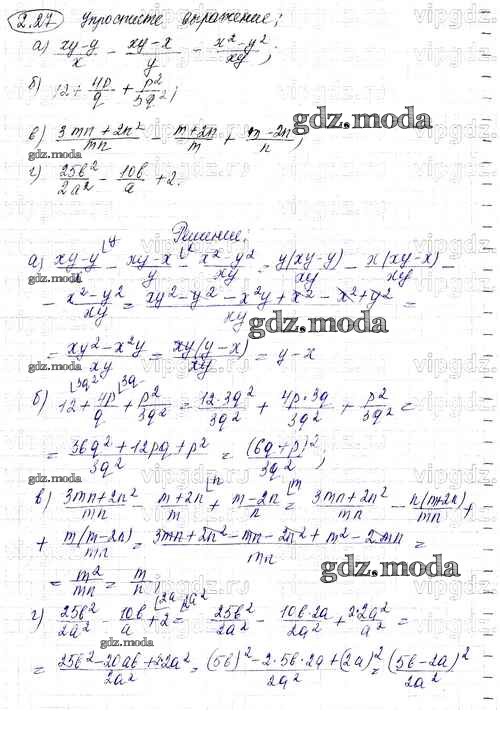 2.27 Упростите выражение:
а) xy-y/x - xy-x/y - x²-y²/xy;
б) 12+ 4p/q + p²/3q²;
в) 3mn+2n²/mn - m+2n/m + m-2n/n;
gdz.moda
г) 25b²/2a² - 10b/a +2.
Решение:
а) xy-y/x - xy-x/y - x²-y²/xy = y(xy-y)/xy - x(xy-x)/xy -
- x²-y²/xy = xy²-y²-x²y+x²-x²+y²/xy =
= xy²-x²y/xy = xy(y-x)/xy = y-x
gdz.moda
б) 12+ 4p/q + p²/3q² = 12·3q²/3q² + 4p·3q/3q² + p²/3q² =
= 36q²+12pq+p²/3q² = (6q+p)²/3q²;
gdz.moda
в) 3mn+2n²/mn - m+2n/m + m-2n/n = 3mn+2n²/mn - n(m+2n)/mn +
+ m(m-2n)/mn = 3mn+2n²-mn-2n²+m²-2mn/mn =
= m²/mn = m/n
gdz.moda
г) 25b²/2a² - 10b/a +2 = 25b²/2a² - 10b·2a/2a² + 2·2a²/a² =
= 25b²-20ab+2·2a²/2a² = (5b)²-2·5b·2a+(2a)²/2a² = (5b-2a)²/2a²
gdz.moda